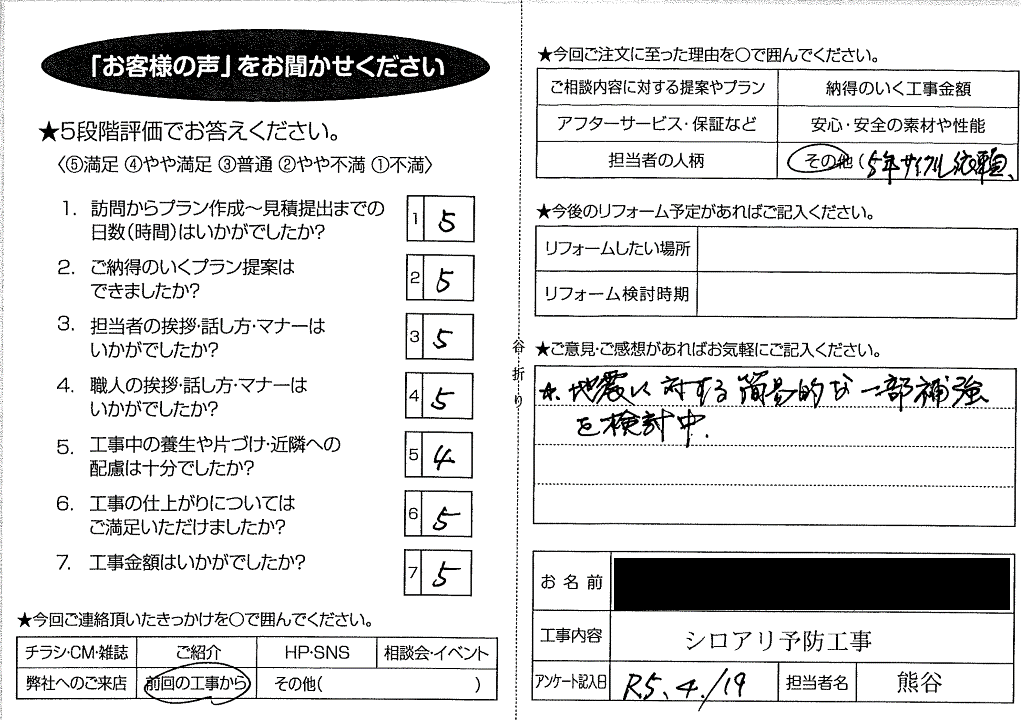 「お客様の声」をお聞かせください
★5段階評価でお答えください。
〈⑤満足 ④やや満足 ③普通 ②やや不満 ①不満〉
1. 訪問からプラン作成～見積提出までの
日数(時間)はいかがでしたか?
1 5
2. ご納得のいくプラン提案は
できましたか?
2 5
3. 担当者の挨拶・話し方・マナーは
いかがでしたか?
3 5
4. 職人の挨拶・話し方・マナーは
いかがでしたか?
4 5
5. 工事中の養生や片づけ・近隣への
配慮は十分でしたか?
5 4
6. 工事の仕上がりについては
ご満足いただけましたか?
6 5
7. 工事金額はいかがでしたか?
7 5
★今回ご連絡頂いたきっかけを○で囲んでください。
チラシ・CM・雑誌 ご紹介 HP・SNS 相談会・イベント
弊社へのご来店 前回の工事から その他( )
谷折り
★今回ご注文に至った理由を○で囲んでください。
ご相談内容に対する提案やプラン 納得のいく工事金額
アフターサービス・保証など 安心・安全の素材や性能
担当者の人柄 その他(5年サイクル依頼、
★今後のリフォーム予定があればご記入ください。
リフォームしたい場所
リフォーム検討時期
★ご意見・ご感想があればお気軽にご記入ください。
☆. 地震に対する簡易的な一部補強
を検討中.
お名前
工事内容 シロアリ予防工事
アンケート記入日 R5、4./19 担当者名 熊谷